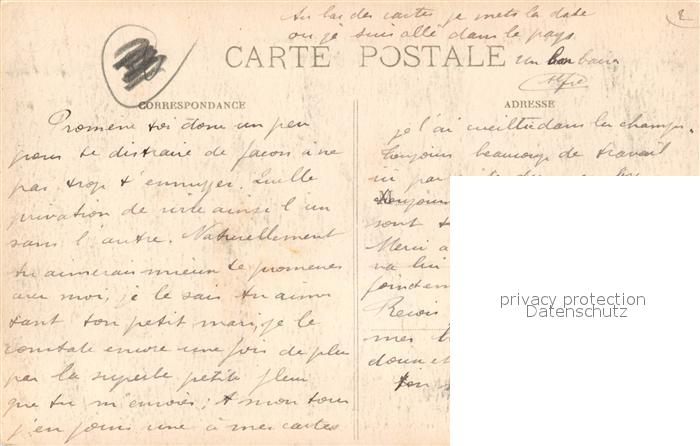 Au bas des cartes je mets la date
ou je suis allé dans le pays.
CARTE POSTALE
un bon baiser
Alfred
CORRESPONDANCE
Promene toi donc un peu
pour te distraire de facon à ne
pas trop t'ennuyer. Quelle
privation de vivre ainsi l'un
sans l'autre. Naturellement
tu aimerais mieux te promener
avec moi, je le sais tu aimes
tant ton petit mari, je le
constate encore une fois de plus
par la superbe petite fleur
que tu m'envoies; A mon tour
j'en joins une à mes cartes
ADRESSE
je l'ai cueillie dans les champs.
Toujours beaucoup de travail
ici par
Toujours
sont
Merci
va lui
joindre
Recois
mes
doux et
ton
privacy protection
Datenschutz